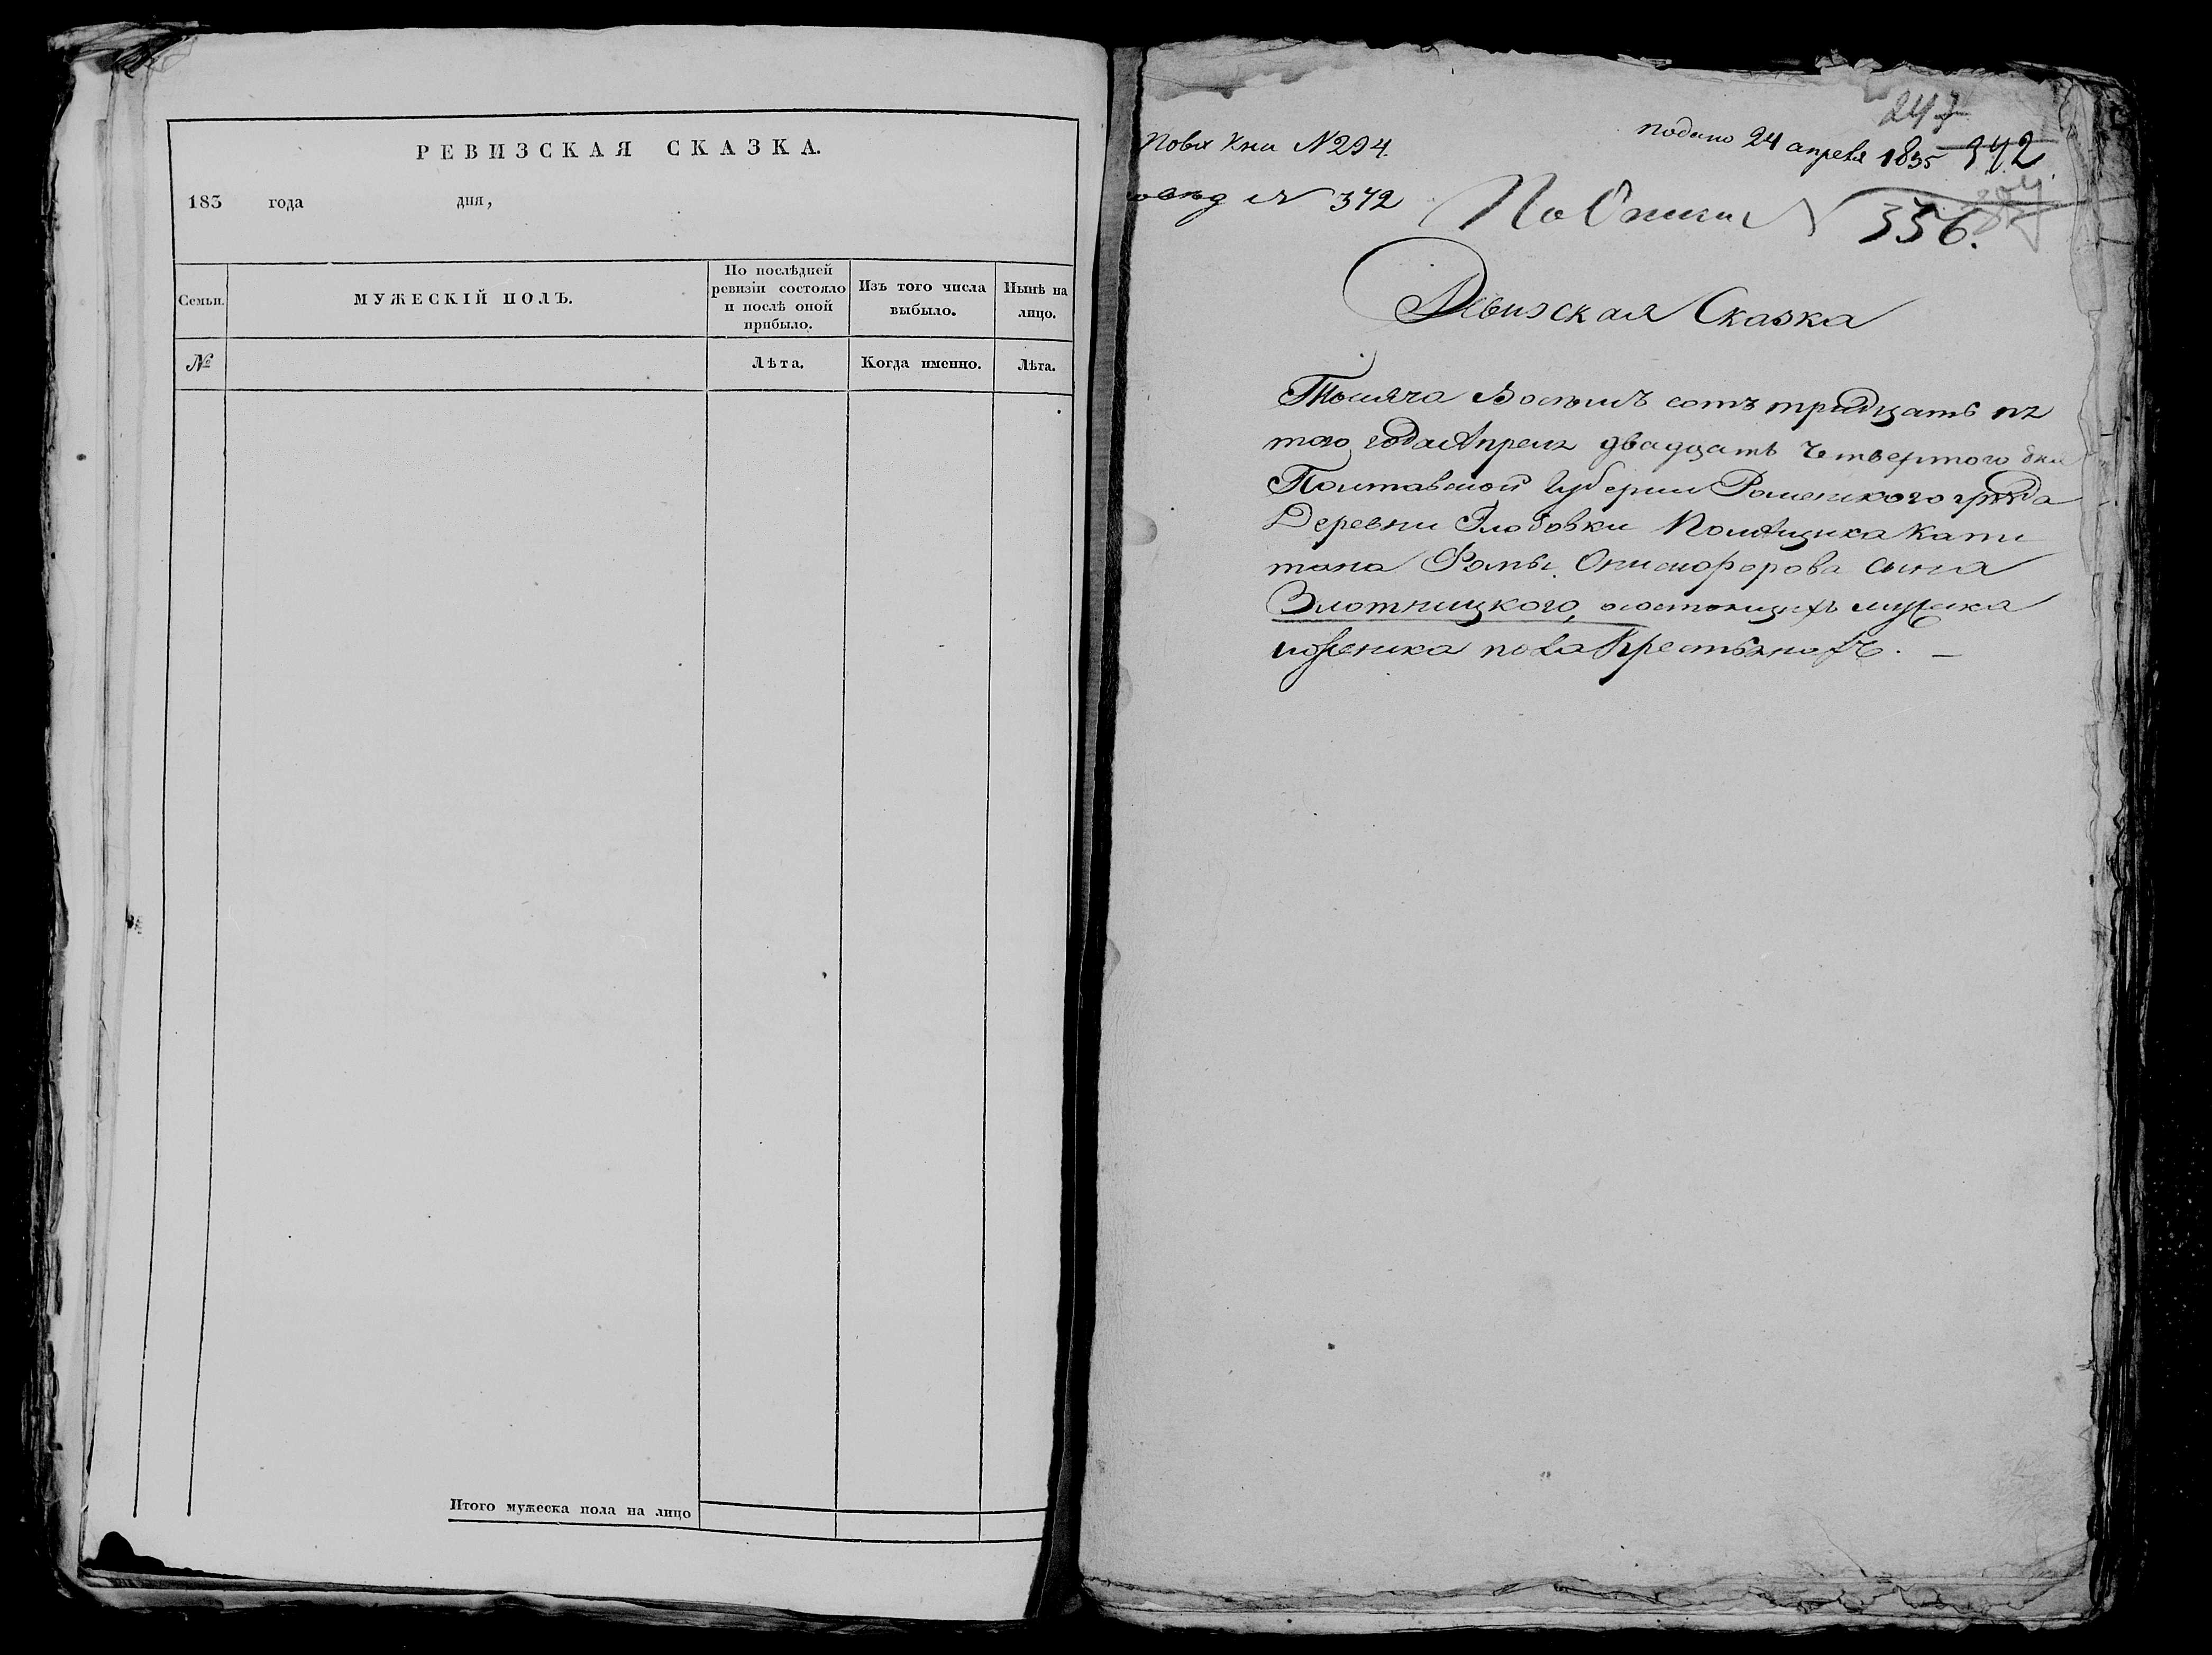 РЕВИЗСКАЯ СКАЗКА.
183 года дня,
Семьи.
МУЖЕСКІЙ ПОЛЪ.
По послѣдней
ревизіи состояло
и послѣ оной
прибыло.
Изъ того числа
выбыло.
Нынѣ на
лицо.
№
Лѣта.
Когда именно.
Лѣта.
Итого мужеска пола на лицо
247
N 294.
подано 24 апреля 1835
342
N 372
По Описи N 356.
Ревизская Сказка
Тысяча Восемъ сотъ тридцать пя
того года Апреля двадцать Четвертого дня
Полтавской Губернии Роменского
Деревни Помѣщика Капи
тана Фомы Онисифорова сына
Злотницкого, осостоящихъ мужска
иженска пола Крестьянахъ. —